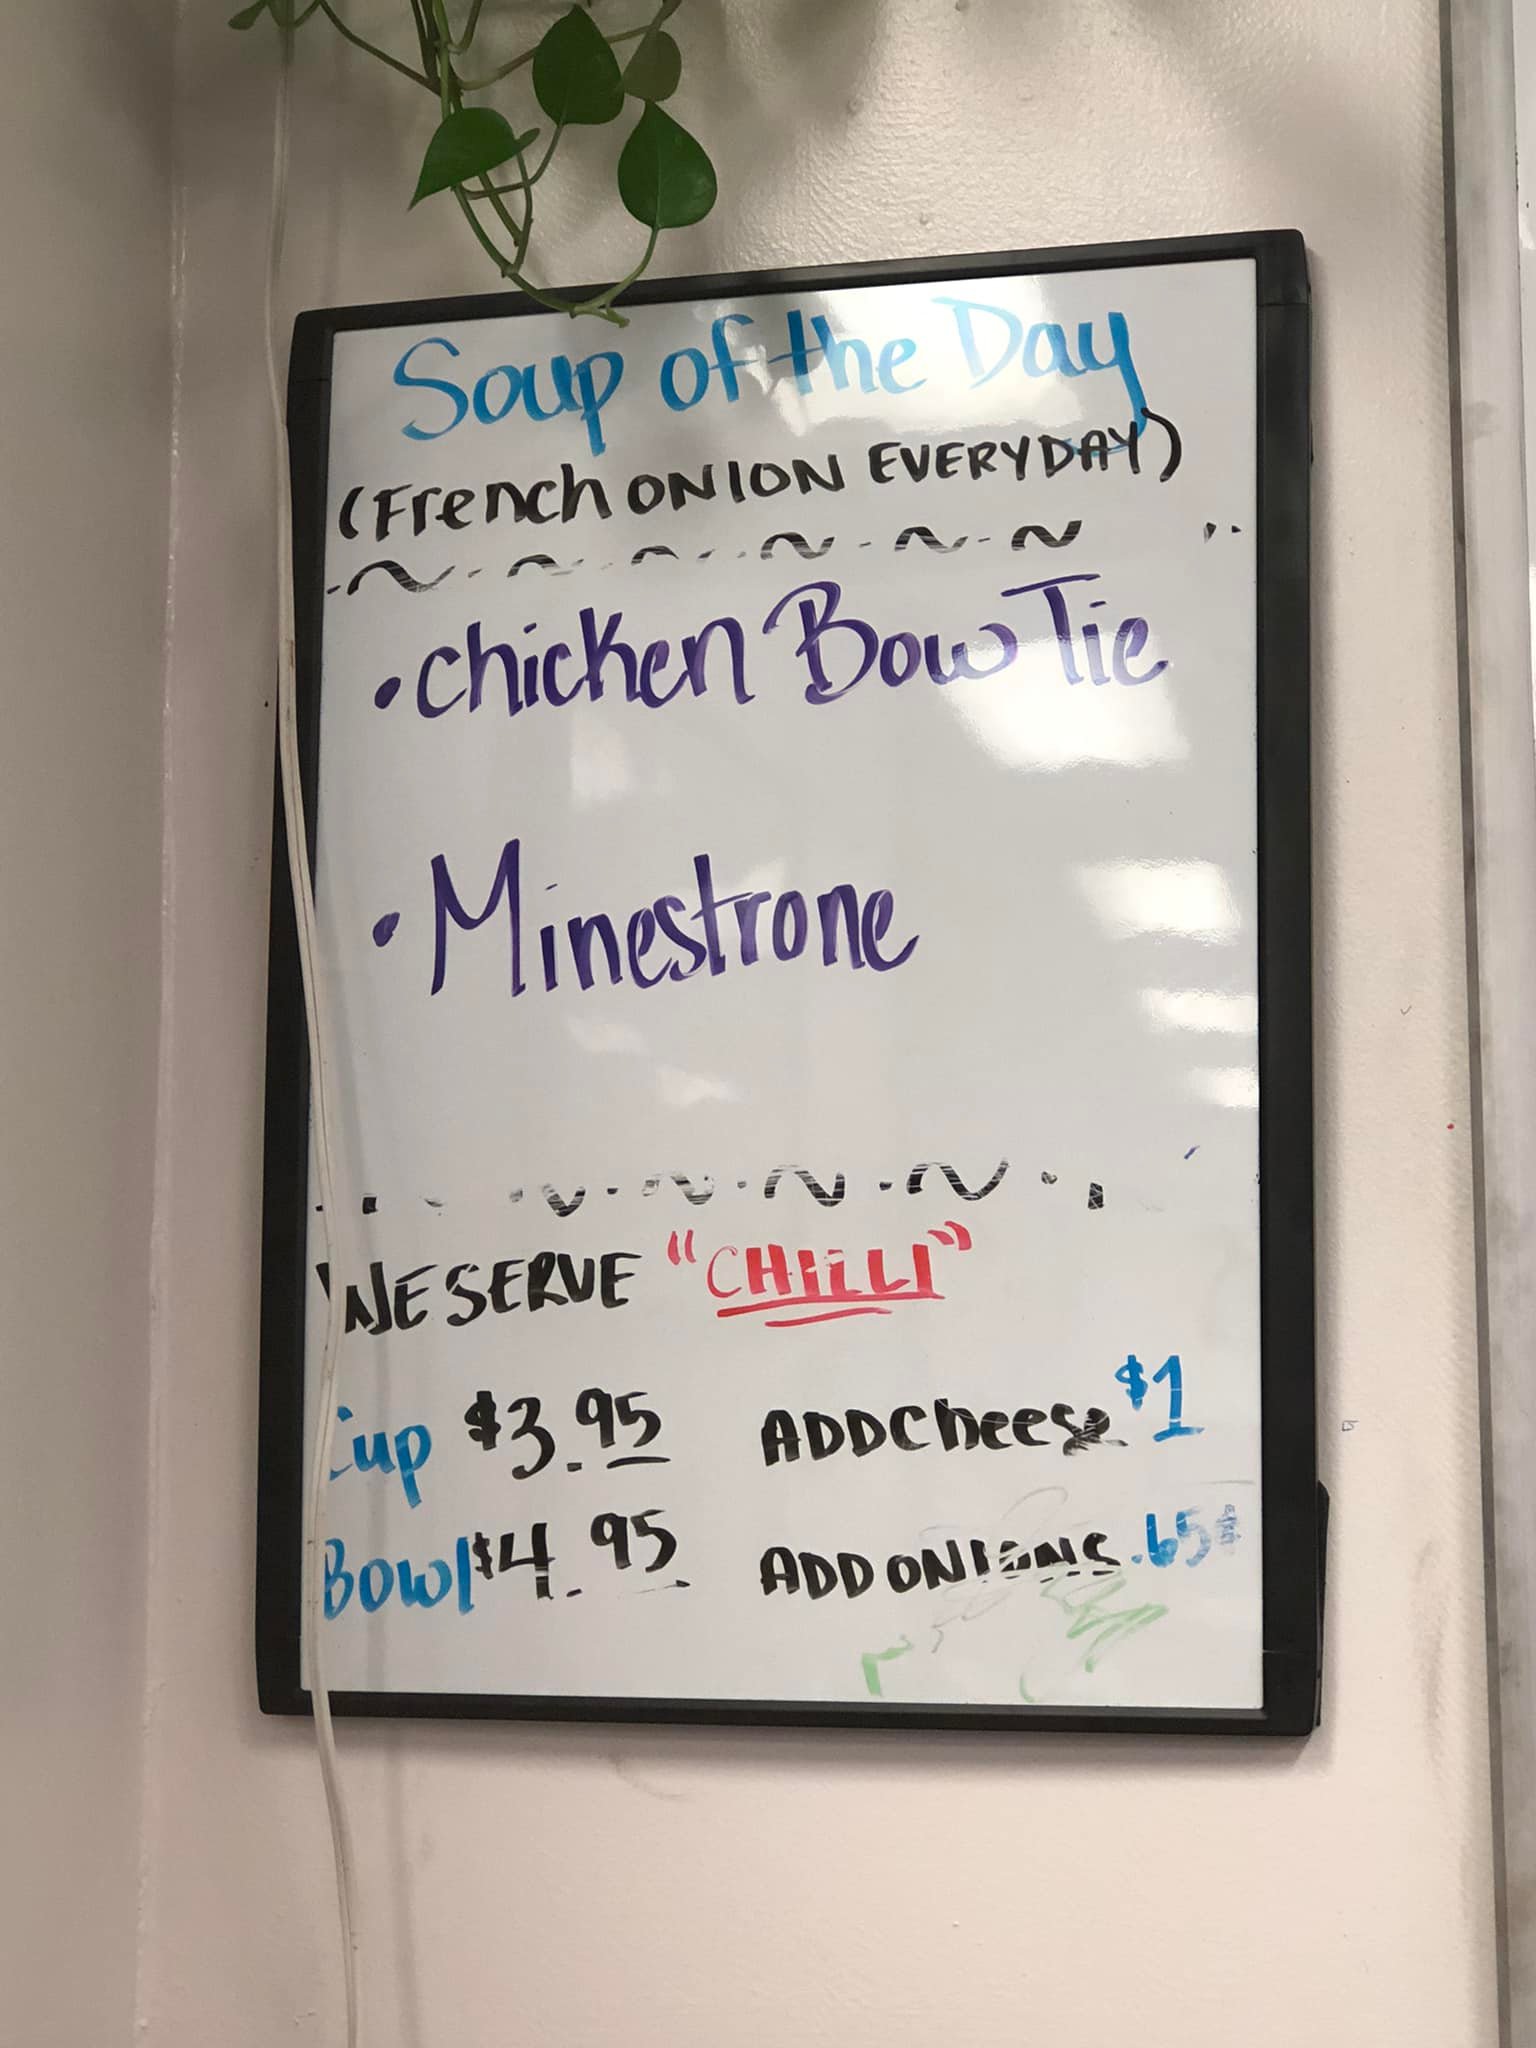 Soup of the Day
(French ONION EVERYDAY)
• chicken Bow Tie
• Minestrone
WE SERVE "CHILLI"
Cup $3.95 ADD Cheese $1
Bowl $4.95 ADD ONIONS .65¢